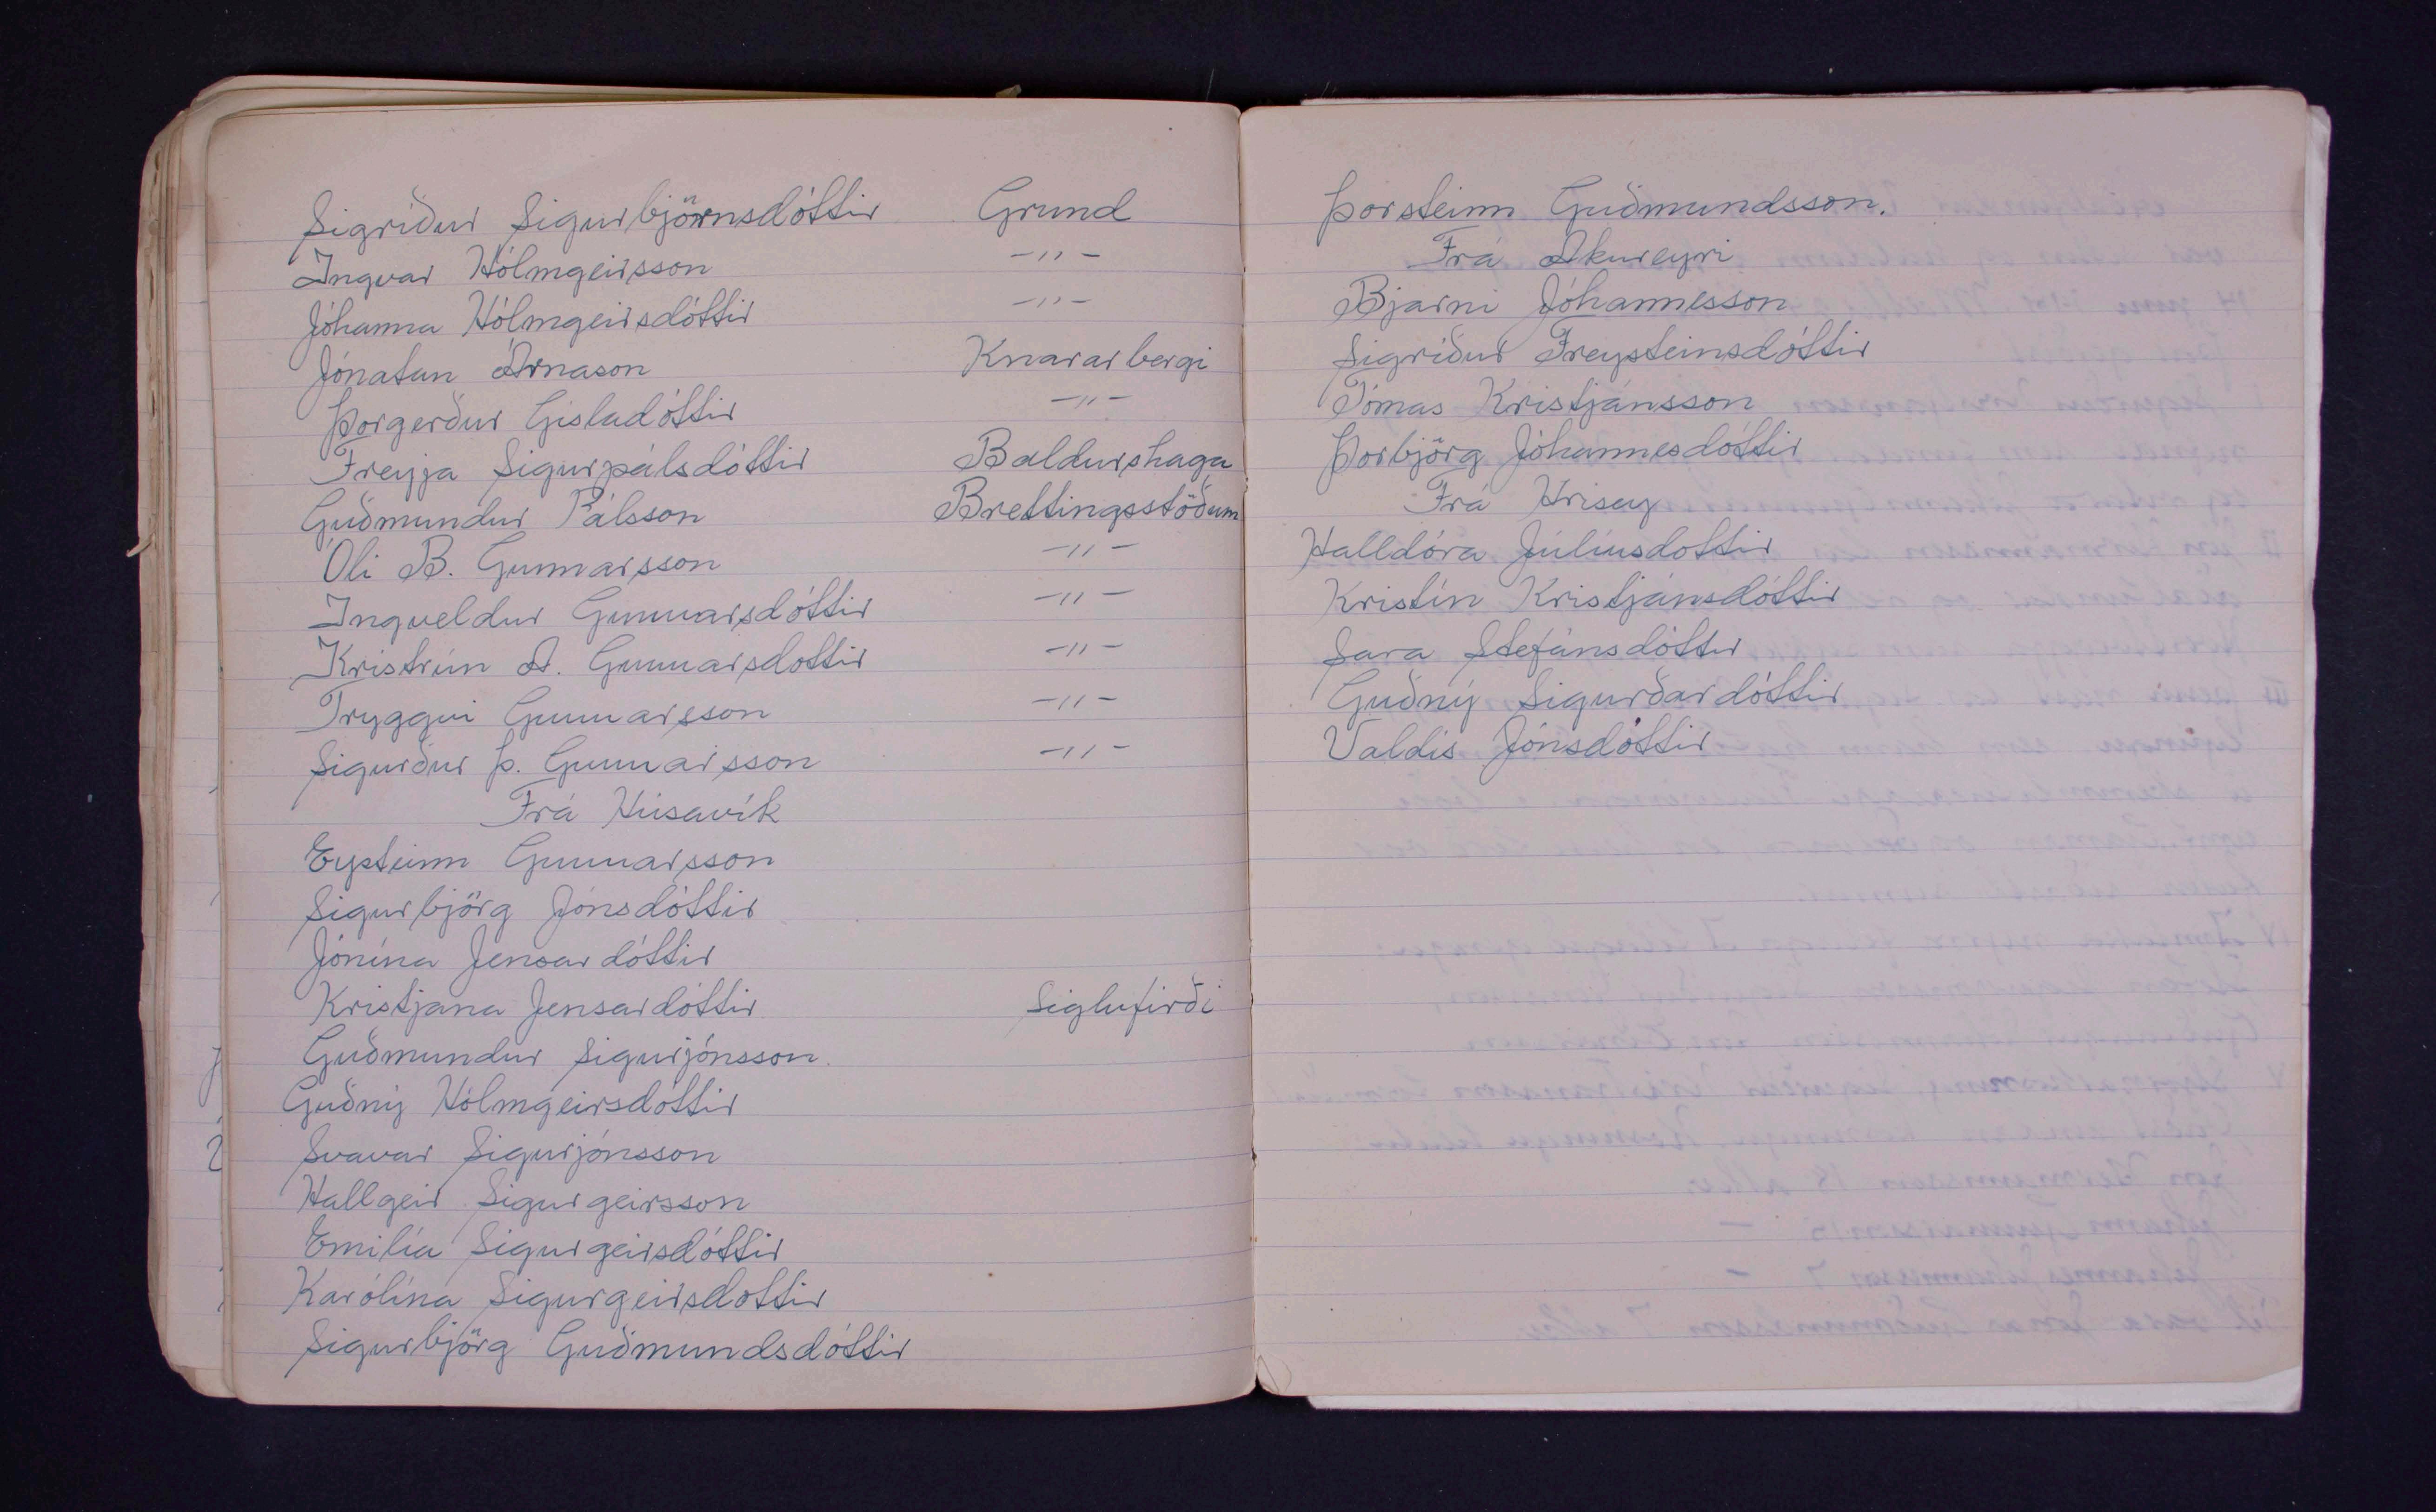 Sigríður Sigurbjörnsdóttir Grund
Ingvar Hólmgeirsson -"-
Jóhanna Hólmgeirsdóttir -"-
Jónatan Árnason Knararbergi
Þorgerður Gísladóttir -"-
Freyja Sigurpálsdóttir Baldurshaga
Guðmundur Pálsson Brettingsstöðum
Óli B. Gunnarsson -"-
Ingveldur Gunnarsdóttir -"-
Kristrún A. Gunnarsdóttir -"-
Tryggvi Gunnarsson -"-
Sigurður Þ. Gunnarsson -"-
Frá Húsavík
Eysteinn Gunnarsson
Sigurbjörg Jónsdóttir
Jónína Jensardóttir
Kristjana Jensardóttir Siglufirði
Guðmundur Sigurjónsson.
Guðný Hólmgeirsdóttir
Svavar Sigurjónsson
Hallgeir Sigurgeirsson
Emilía Sigurgeirsdóttir
Karólína Sigurgeirsdottir
Sigurbjörg Guðmundsdóttir
Þorsteinn Guðmundsson.
Frá Akureyri
Bjarni Jóhannesson
Sigríður Freysteinsdóttir
Tómas Kristjánsson
Þorbjörg Jóhannesdóttir
Frá Hrísey
Halldóra Júlíusdottir
Kristín Kristjánsdóttir
Sara Stefánsdóttir
Guðný Sigurðardóttir
Valdís Jónsdóttir